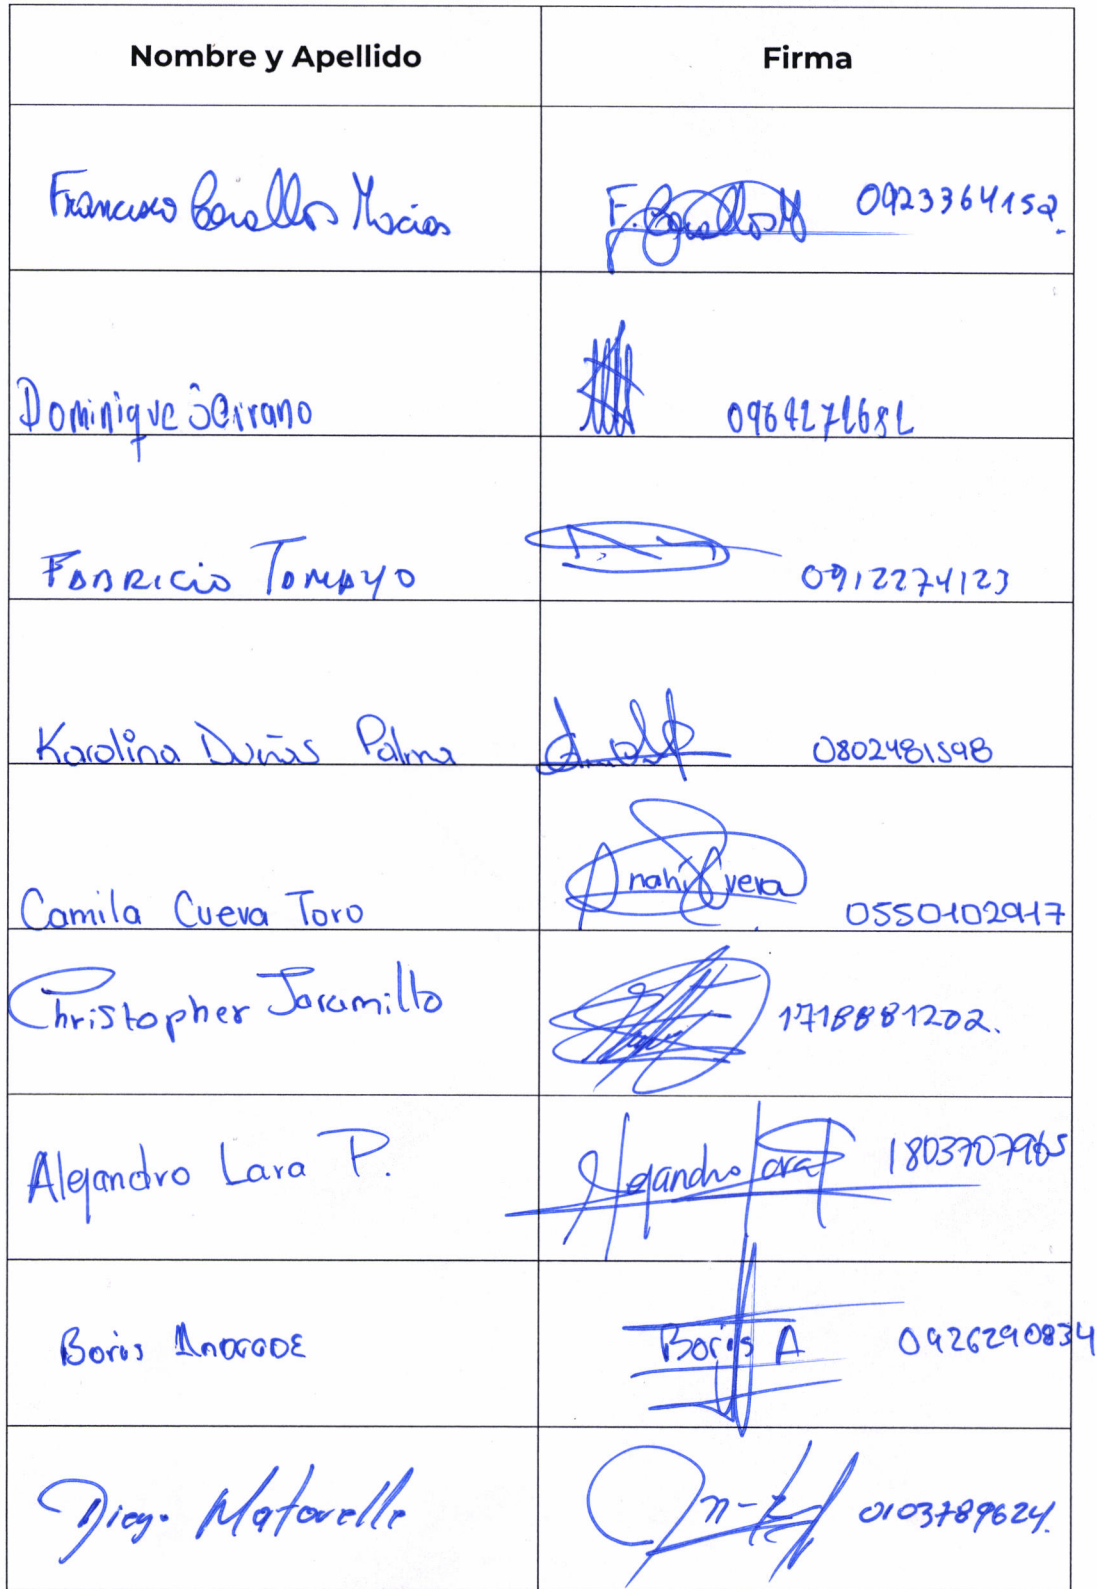 Nombre y Apellido Firma
Francisco Cevallos Macias F. Cevallos M 0923364152.
Dominique Serrano 0964271681
Fabricio Tamayo 0912274123
Karolina Dueñas Palma 0802481598
Camila Cueva Toro Anahi Cueva 0550102917
Christopher Jaramillo 1718881202.
Alejandro Lara P. Alejandro Lara P 1803707965
Boris Andrade Boris A 0926290834
Diego Matovelle 0103789624.